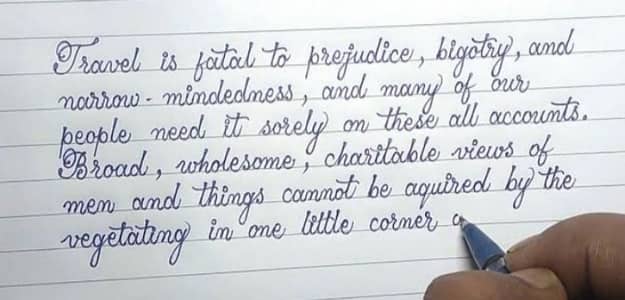 Travel is fatal to prejudice, bigotry, and
narrow-mindedness, and many of our
people need it sorely on these all accounts.
Broad, wholesome, charitable views of
men and things cannot be aquired by the
vegetating in one little corner